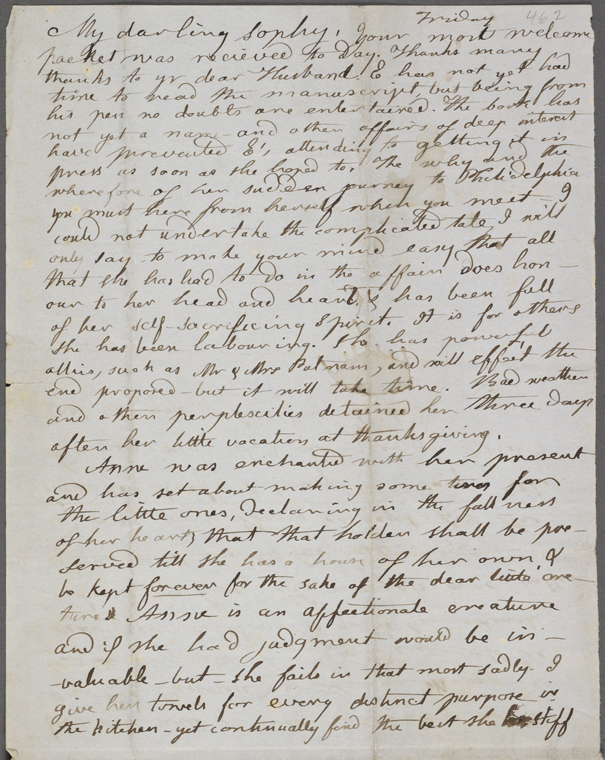 Friday 462
My darling Sophy, Your most welcome
packet was recieved to Day. Thanks many
thanks to yr dear Husband. E has not yet had
time to read the manuscript but being from
his pen no doubts are entertained. The book has
not yet a name - and other affairs of deep interest
have prevented E's, attending to getting it in
press as soon as she hoped to. The why and the
wherefore of her sudden journey to Philidelphia
you must here from herself when you meet - I
could not undertake the complicated tale I will
only say to make your mind easy that all
that she has had to do in the affair does hon-
our to her head and heart & has been full
of her self-sacrificing spirit. It is for others
she has been labouring. She has powerful
allies, such as Mr & Mrs Putnam, and will effect the
end proposed - but it will take time. Bad weather
and other perplexities detained her three days
after her little vacation at thanksgiving.
Anne was enchanted with her present
and has set about making some for
the little ones, declaring in the fullness
of her heart that that holder shall be pre-
served till she has a house of her own &
be kept forever for the sake of the dear little crea
tures Anne is an affectionate creature
and if she had judgment would be in-
-valuable - but - she fails in that most sadly. I
give her towels for every distinct purpose in
the kitchen - yet continually find the best she stiff